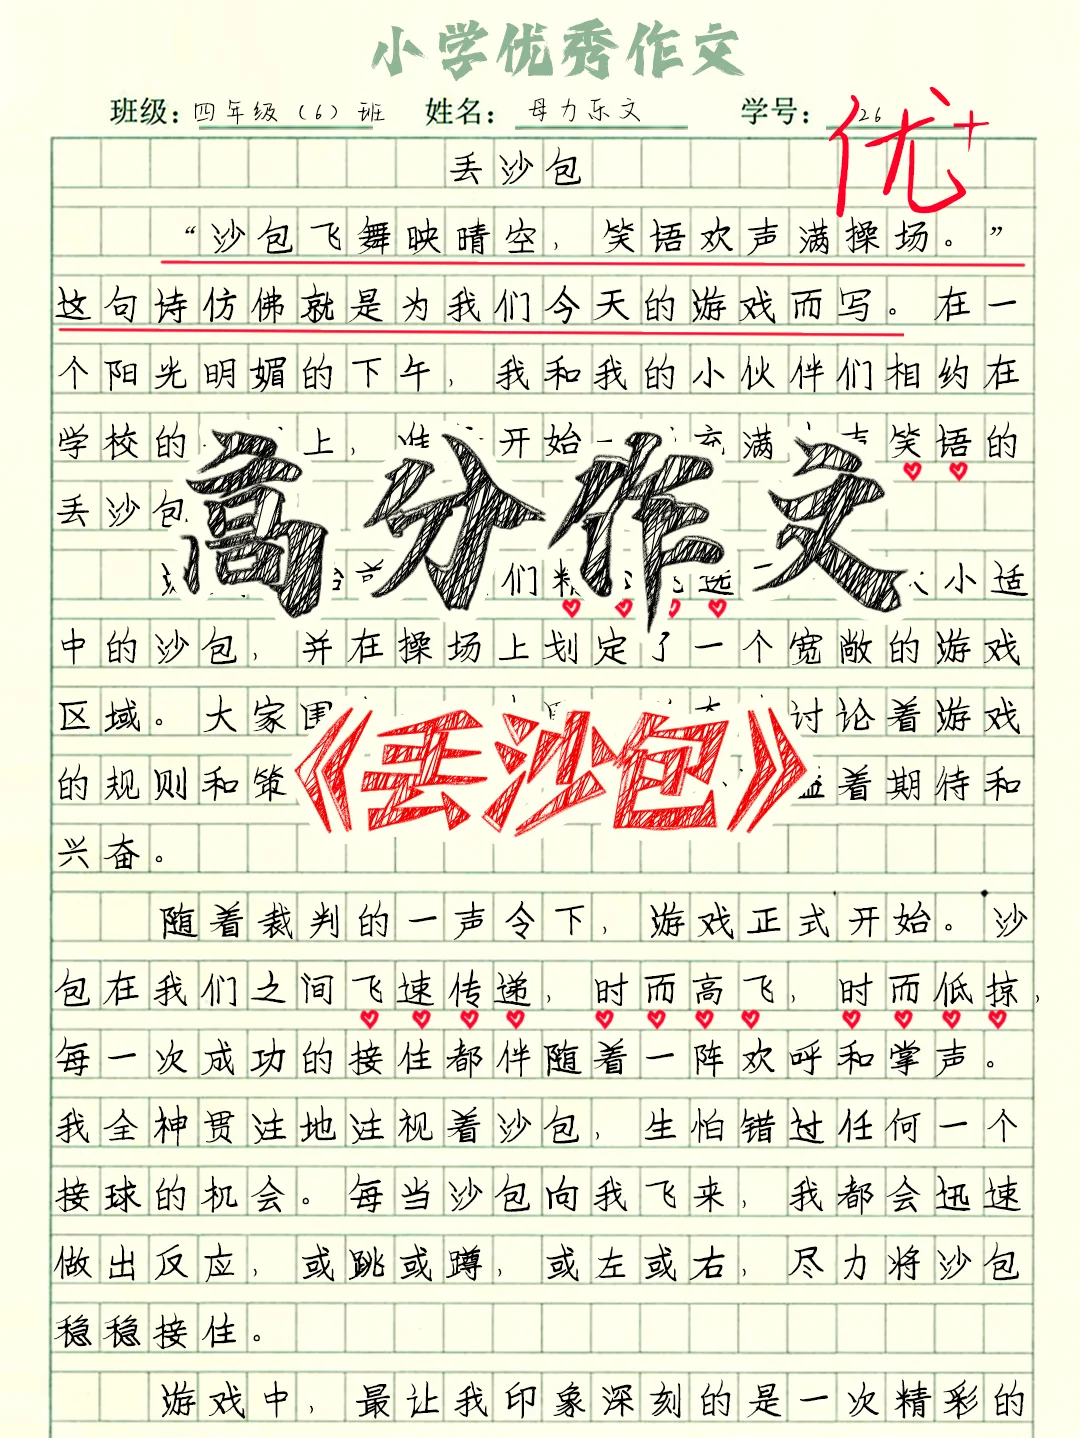 小学优秀作文
班级：四年级（6）班 姓名：母力乐文 学号：26
优+
丢沙包
“沙包飞舞映晴空，笑语欢声满操场。”
这句诗仿佛就是为我们今天的游戏而写。在一
个阳光明媚的下午，我和我的小伙伴们相约在
学校的 上， 开始 充满 笑语的
丢沙包
们精 选 小适
中的沙包，并在操场上划定了一个宽敞的游戏
区域。大家围 讨论着游戏
的规则和策 着期待和
兴奋。
高分作文
《丢沙包》
随着裁判的一声令下，游戏正式开始。沙
包在我们之间飞速传递，时而高飞，时而低掠，
每一次成功的接住都伴随着一阵欢呼和掌声。
我全神贯注地注视着沙包，生怕错过任何一个
接球的机会。每当沙包向我飞来，我都会迅速
做出反应，或跳或蹲，或左或右，尽力将沙包
稳稳接住。
游戏中，最让我印象深刻的是一次精彩的